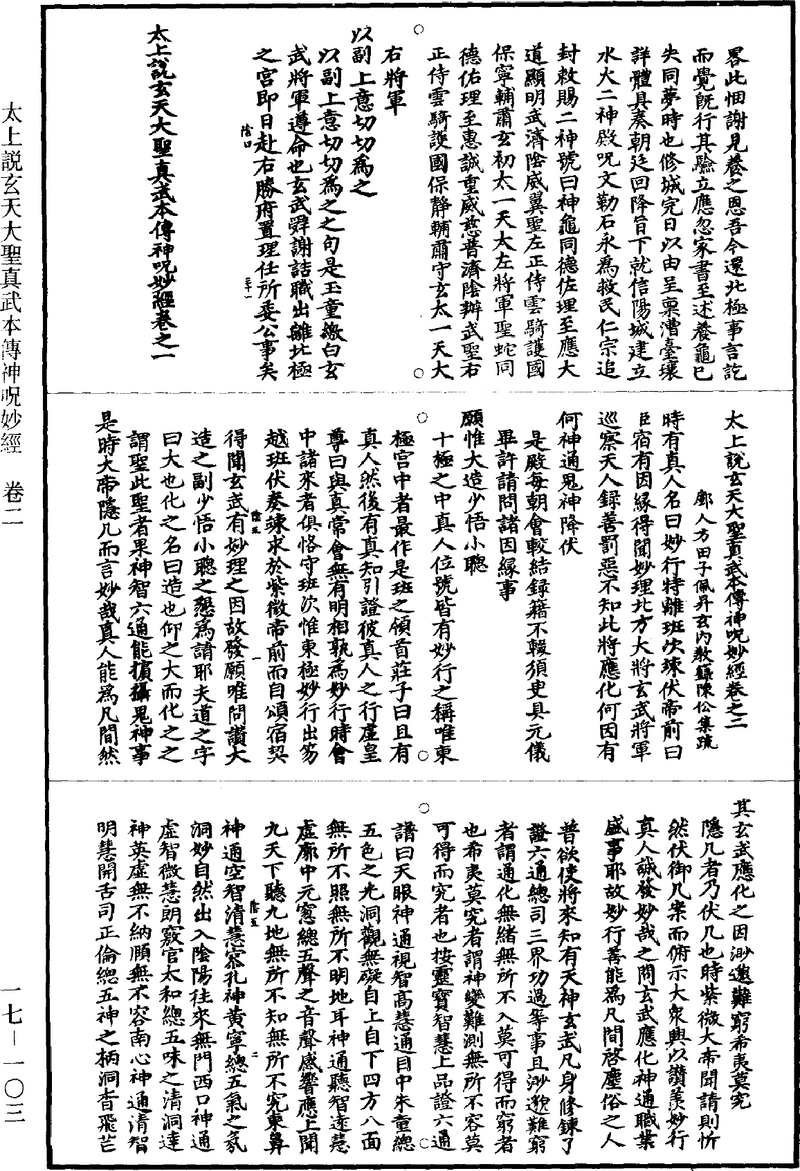 畧此恛謝見養之恩吾今還北極事言訖
而覺旣行其驗立應忽家書至述養龜已
失同夢時也修城完日以由呈稟漕臺壞
詳體具奏朝廷回降旨下就信陽城建立
水火二神殿呪文勒石永為救民仁宗追
封敕賜二神號曰神龜同德佐理至應大
道顯明武濟陰威翼聖左正侍雲騎護國
保寧輔肅玄初太一天大左將軍聖蛇同
德佑理至惠誠重威慈普濟陰辦武聖右
正侍雲騎護國保靜輔肅守玄太一天大
右將軍
以副上意切切為之
以副上意切切為之之句是玉童繳白玄
武將軍遵命也玄武舜謝詰職出離北極
之宮即日赴右勝府置理任所委公事矣
太上說玄天大聖真武本傳神呪妙經卷之一
太上說玄天大聖真武本傳神呪妙經卷之二
鄱人方田子佩昇玄內教籙陳伀集疏
時有真人名曰妙行特離班次竦伏帝前曰
臣宿有因緣得聞妙理北方大將玄武將軍
巡察天人錄善罰惡不知此將應化何因有
何神通鬼神降伏
是殿每朝會較結錄籍不輟須叟具元儀
畢許請問諸因緣事
願惟大造少悟小聰
十極之中真人位號皆有妙行之稱唯東
極宮中者最作是班之領首莊子曰且有
真人然後有真知引證彼真人之行虛皇
尊曰與真常會無有明相孰為妙行時會
中諸來者俱恪守班次惟東極妙行出笏
越班伏奏竦求於紫微帝前而自頌宿契
得聞玄武有妙理之因故發願唯問讚大
造之副少悟小聰之懇為請耶夫道之字
曰大也化之名曰造也仰之大而化之之
謂聖此聖者果神智六通能擯攝鬼神事
是時大帝隱几而言妙哉真人能為凡間然
其玄武應化之因渺邈難窮希夷莫究
隱几者乃伏几也時紫微大帝聞請則忻
然伏御几案而俯示大衆與以讚羨妙行
真人誠發妙哉之問玄武應化神通職業
盛事耶故妙行善能為凡間啓塵俗之人
普欲使將來知有天神玄武凡身修鍊了
證六通總司三界功過等事且渺邈難窮
者謂通化無緒無所不入莫可得而窮者
也希夷莫究者謂神變難測無所不容莫
可得而究者也按靈寶智慧上品證六通
譜曰天眼神通視智高慧通目中朱童總
五色之光洞觀無礙自上自下四方八面
無所不照無所不明地耳神通聽智遠慧
虛廓中元窻總五聲之音聲感響應上聞
九天下聽九地無所不知無所不究東鼻
神通空智清慧寥孔神黃寧總五氣之氛
洞妙自然出入陰陽往來無門西口神通
虛智微慧朗竅官太和總五味之清洞達
神英虛無不納順無不容南心神通清智
明慧開舌司正倫總五神之柄洞杳飛芒
太上說玄天大聖真武本傳神呪妙經　卷二
一七－一〇三